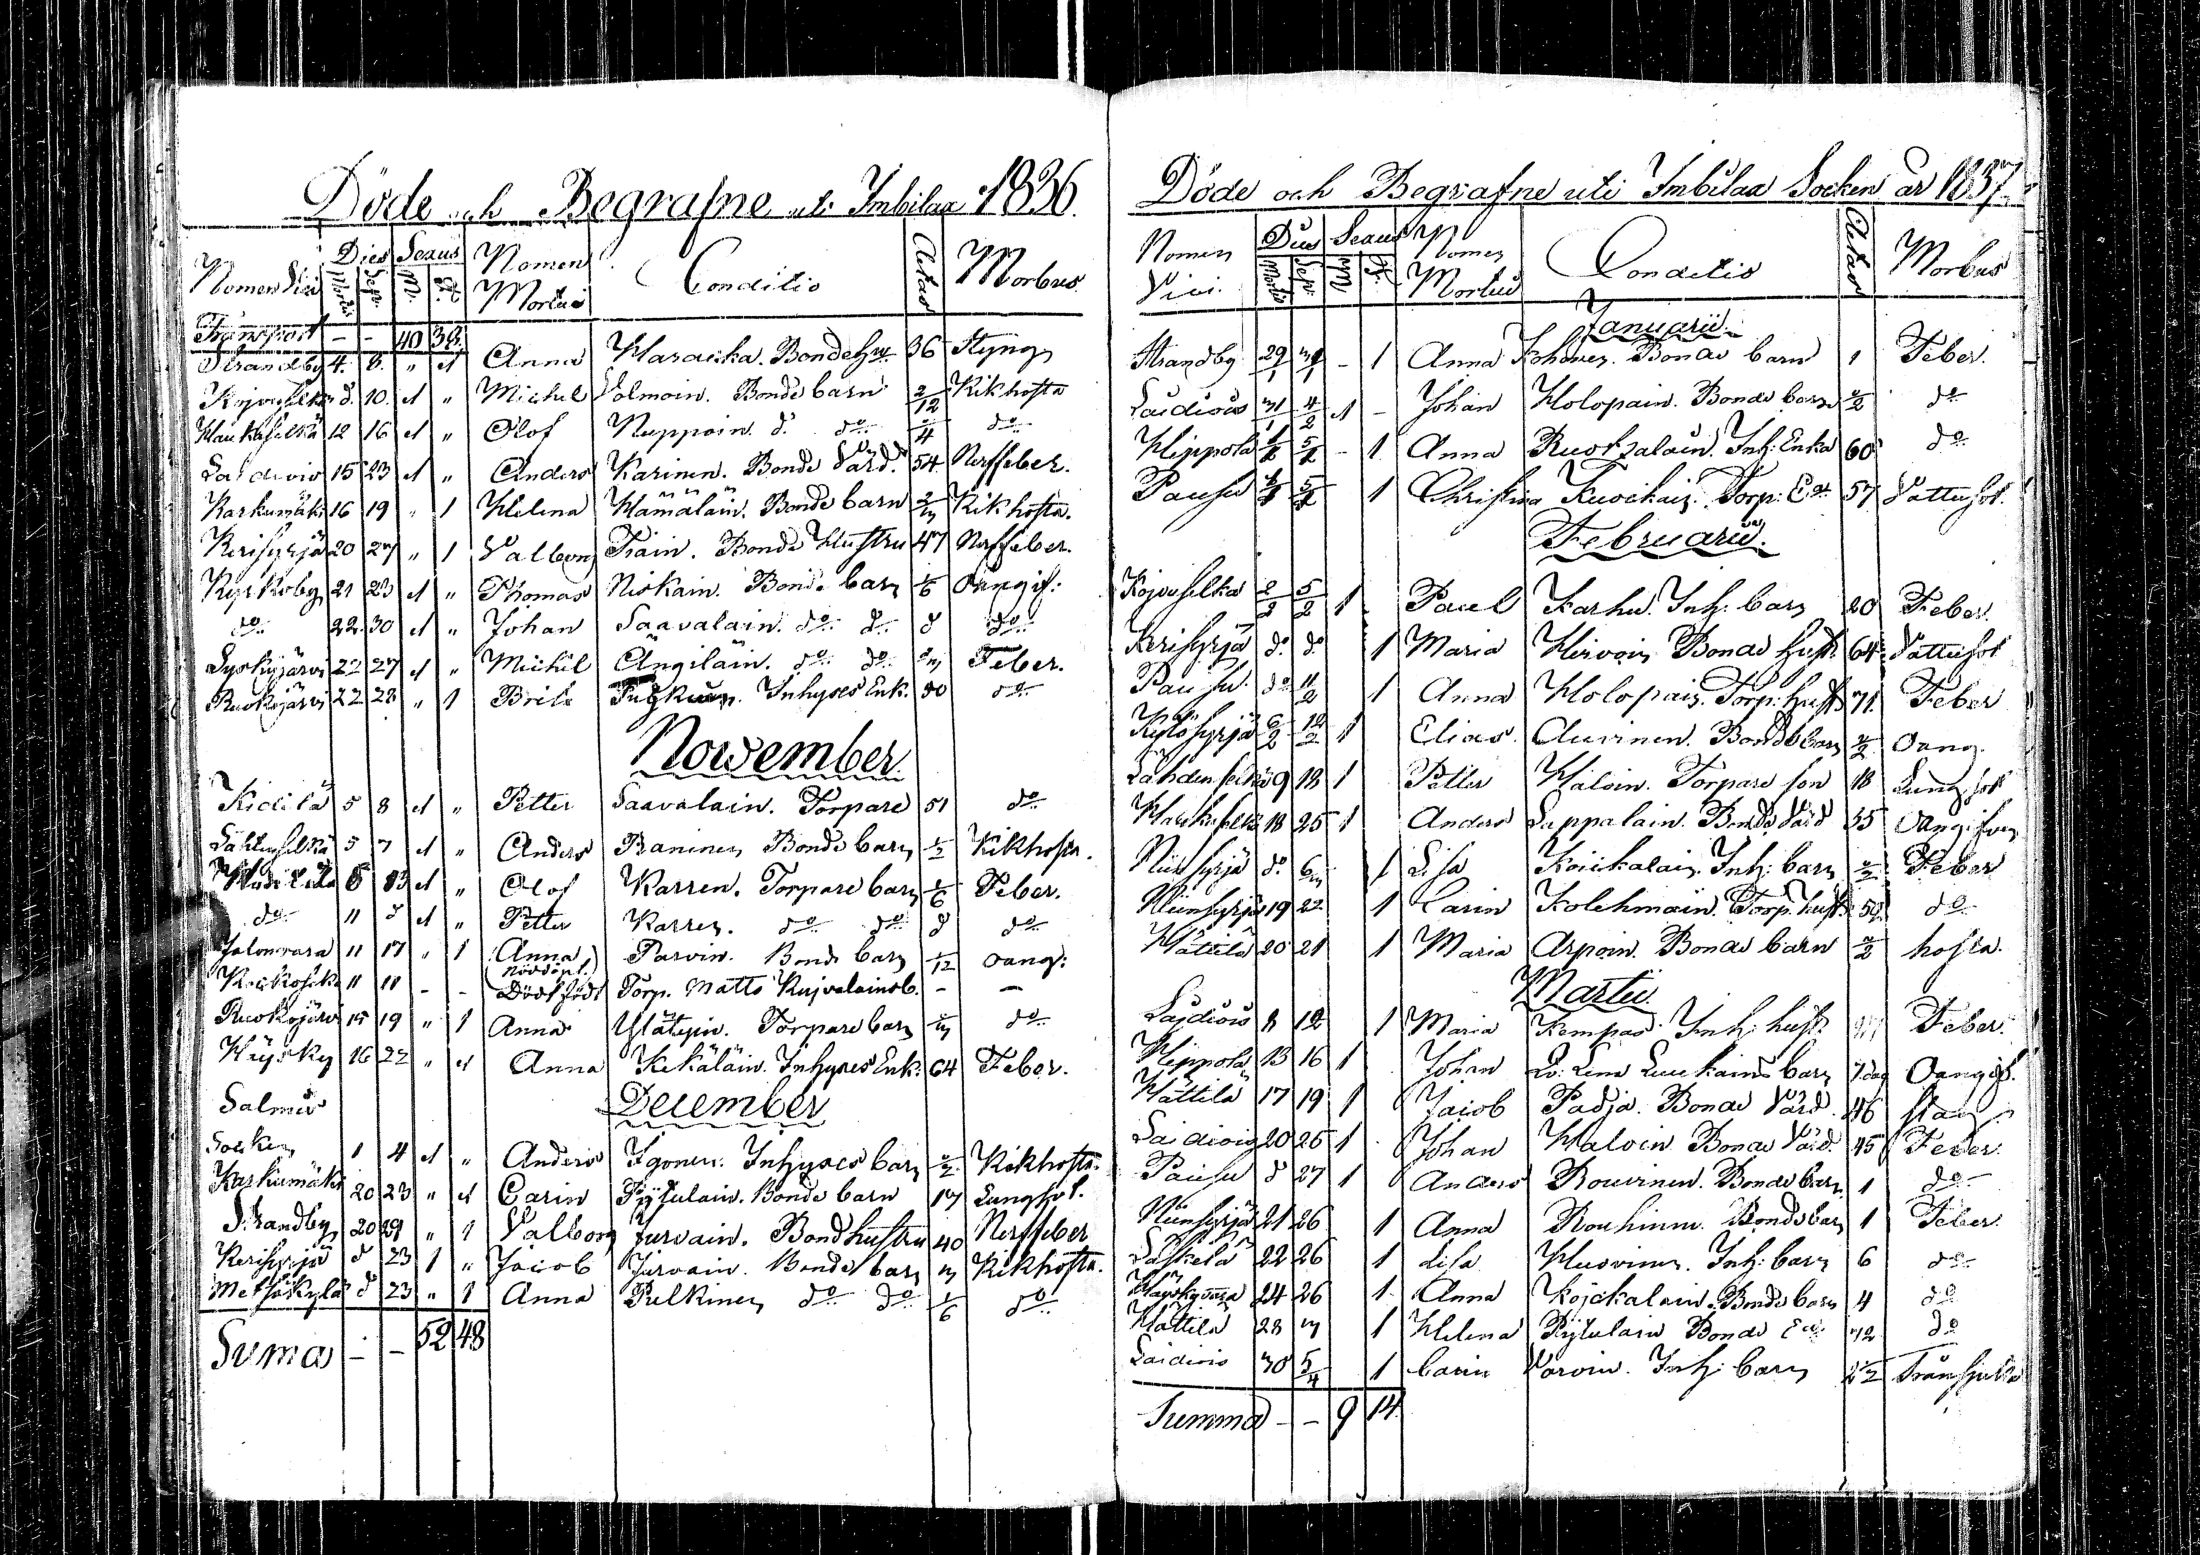 Döde och Begrafne uti Imbilax 1836.
Nomen Vici Dies Sexus Nomen Conditio Aetas Morbus
Mortis Sep. M. F. Mortui
Transport - - 40 38.
Strandby 4. 8. " 1 Anna Haracka. Bonde Hu. 36 Styng
Kojvuselkä d. 10. 1 " Michel Volmoin. Bonde barn 2/12 Kikhosta
Haukaselkä 12 16 1 " Olof Nuppoin. do do /4 do
Laidiois 15 23 1 " Anders Karinen. Bonde Värd. 54 Nerffeber.
Karkumäki 16 19 " 1 Helena Hämäläin. Bonde barn Kikhosta.
Kerisyrjä 20 27 " 1 Valborg Tiain. Bonde Hustru 47 Nerffeber.
Kyrkoby 21 23 1 " Thomas Niskain. Bonde barn 1/6 Oangif:
do 22. 30 1 " Johan Saavalain. do do d do
Syskyjärvi 22 27 1 " Michel Ängiläin. do do Feber.
Ruokojärvi 22 28 " 1 Brita Inhyses Enk. 50 do
November
Kidilä 5 8 1 " Petter Saavalain. Torpare 51 do
Lahdenselkä 5 7 1 " Anders Baninen Bonde barn 1/2 Kikhosta.
6 13 1 " Olof Karren. Torpare barn 1/6 Feber.
do 11 d 1 " Petter Karren. do do d do
Jalonvara 11 17 " 1 Anna Parvin. Bonde barn 1/12 oang:
(Nöddöpt.)
11 11 - - Dödfödt Torp. Matts Kujvalains b. - -
Ruokojärvi 15 19 " 1 Anna Ylätupin. Torpare barn do
Häysky 16 22 " 1 Anna Kekäläin. Inhyses Enk. 64 Feber.
Salmis December
Socken 1 4 1 " Anders Igonen. Inhyses barn Kikhosta.
Karkumäki 20 23 " 1 Carin Pÿtulain. Bonde barn 17 Lungsot.
Strandby 20 29 " 1 Valborg Jurvain. Bond hustru 40 Nerffeber
Kerisyrjä d 23 1 " Jacob Jurvain. Bonde barn Kikhosta.
Metsäkylä d 23 " 1 Anna Pulkinen do do 1/6 do
Suma - - 52 48
Döde och Begrafne uti Imbilax Socken år 1837.
Nomen Dies Sexus Nomen Conditio Aetas Morbus
Vici. Mortis Sep. M F. Mortui
Januarii
Strandby 29/1 31/1 - 1 Anna Kohonen. Bonde barn 1 Feber.
Laidiois 31/1 4/2 1 - Johan Holopain. Bonde barn do
Hippola 5/2 - 1 Anna Ruotzalain. Inh: Enka 60 do
Pausu 5/2 1 Christina Kuoikain. Torp: Ea. 57 Vattusot.
Februarii.
Kojvuselkä 2/2 5/2 1 Paul Karhu. Inh. barn 20 Feber.
Kerisyrjä do. do 1 Maria Hirvoin Bonde hust. 64 Vattusot
Pausu. do 11/2 1 Anna Holopain. Torp: hust. 71. Feber
Kytösyrjä 6/2 12/2 1 Elias Auvinen. Bonde barn oang.
Lahdenselkä 9 18 1 Petter Haloin. Torpare son 18 Lungsot
Haukaselkä 18 25 1 Anders Lappalain. Bonde Värd 55 Oangifven
Niinisyrjä do. 6 1 Lisa Koickalain. Inh: barn Feber
Niinisyrjä 19 22 1 Carin Kolehmain. Torp. hust. 52 do
Hattila 20 21 1 Maria Arpoin. Bonde barn hosta.
Martii
Laidiois 8 12 1 Maria Kempas. Inh: hust. Feber.
Hippola 13 16 1 Johan Lena Luukains barn 7. dag Oangif.
Hattila 17 19 1 Jacob Padja. Bonde Värd. 46
Laidiois 20 26 1 Johan Haloin Bonde Värd. 45 Feber.
Pausu d 27 1 Anders Rouvinen. Bonde barn 1 do
Niinisyrjä 21 26 1 Anna Rouhinin. Bonde barn 1 Feber.
Läskelä 22 26 1 Lisa Huovinen. Inh: barn 6 do
24 26 1 Anna Kojckalain. Bonde barn 4 do
Hattila 28 1 Helena Pÿtulain Bonde Ea. 72 do
Laidiois 30 5/4 1 Carin Varvin. Inh: barn
Summa - - 9 14